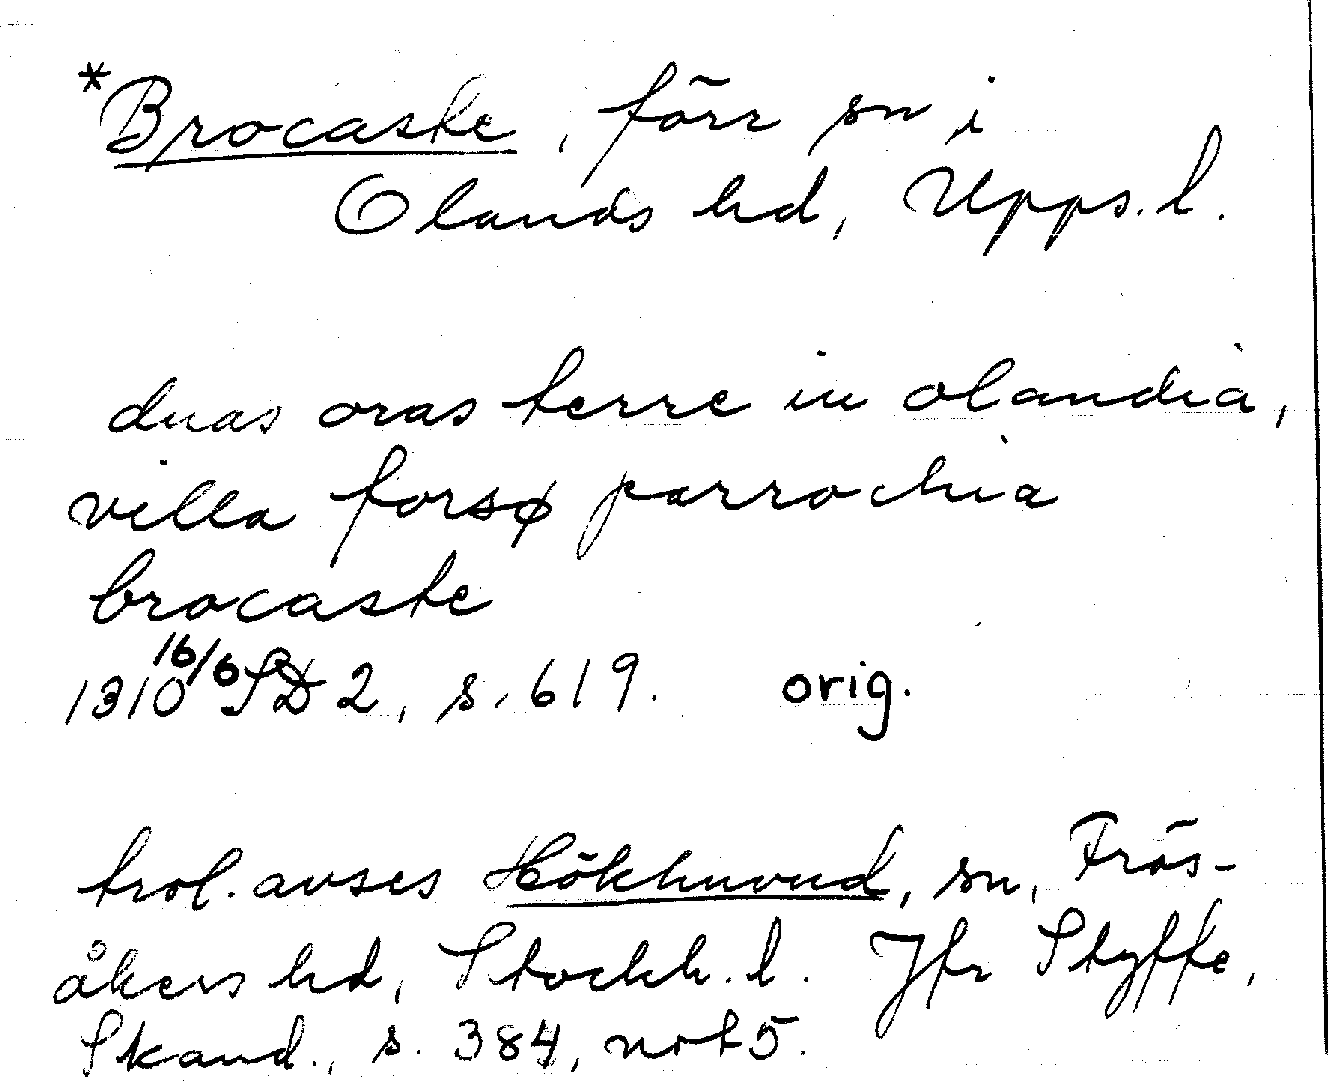 *Brocaste, förr sn i
Olands hd, Upps. l.
duas oras terre in olandia,
villa forsø parrochia
brocaste
1310 16/6 SD 2, s. 619. orig.
trol. avses Hökhuvud, sn, Frös-
åkers hd, Stockh. l. Jfr Styffe,
Skand., s. 384, not 5.